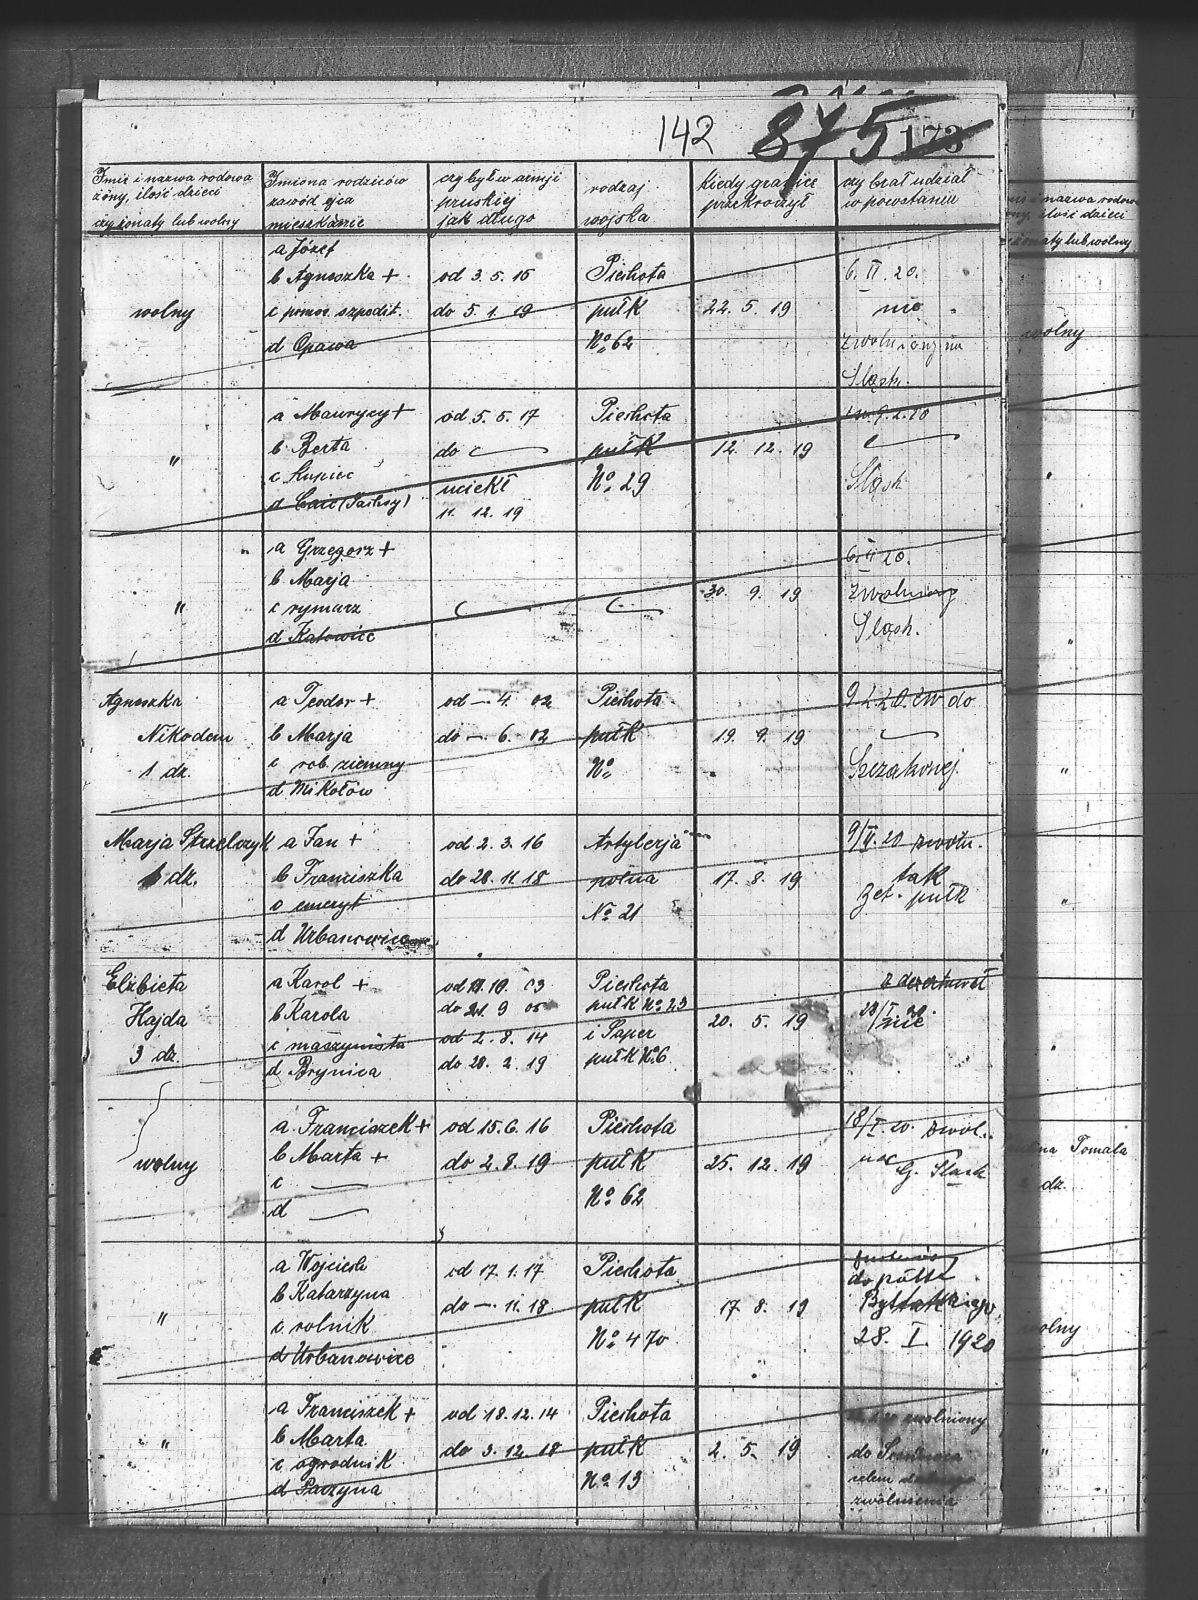 142 875 173
Imię i nazwa rodowa
żony, ilość dzieci
czy żonaty lub wolny
Imiona rodziców
zawód ojca
mieszkanie
czy był w armji
pruskiej
jak długo
rodzaj
wojska
kiedy granice
przekroczył
czy brał udział
w powstaniu
wolny
a Józef
b Agnieszka +
c pomoc. szpedit.
d Opawa
od 3. 5. 16
do 5. 1. 19
Piechota
pułk
No 62
22. 5. 19
6. II. 20.
nie
zwolniony na
Śląsk.
"
a Maurycy +
b Berta
c kupiec
d (Sachsy)
od 5. 5. 17
do
uciekł
11. 12. 19
Piechota
pułk
No 29
12. 12. 19
9. 2. 20
Śląsk
"
a Grzegorz +
b Marja
c rymarz
d Katowice
30. 9. 19
6. II 20.
zwolniony
Śląsk.
Agnieszka
Nikodem
1 dz.
a Teodor +
b Marja
c rob. ziemny
d Mikołów
od — 4. 02
do — 6. 02
Piechota
pułk
No
19. 9. 19
9 2 20. do
Szczakowej
Marja Strzelczyk
1 dz.
a Jan +
b Franciszka
c emeryt
d Urbanowice
od 2. 3. 16
do 28. 11. 18
Artylerja
polna
No 21
17. 8. 19
9/II. 20 zwoln.
tak
Bet. pułk
Elżbieta
Hajda
3 dz.
a Karol +
b Karola
c maszynista
d Brynica
od 19. 10. 03
do 21. 9 05
od 2. 8. 14
do 28. 2. 19
Piechota
pułk No 23
i Paper
pułk No 6
20. 5. 19
zdezertował
28/I 20.
nie
wolny
a Franciszek +
b Marta +
c —
d —
od 15. 6. 16
do 2. 8. 19
Piechota
pułk
No 62
25. 12. 19
18/I 20. zwol.
na
G. Śląsk
"
a Wojciech
b Katarzyna
c rolnik
d Urbanowice
od 17. 1. 17
do — 11. 18
Piechota
pułk
No 470
17. 8. 19
do pułku
Bytomskiego
28. I. 1920
"
a Franciszek +
b Marta
c ogrodnik
d Paczyna
od 18. 12. 14
do 3. 12. 18
Piechota
pułk
No 13
2. 5. 19
zwolniony
do Sosnowca
celem
zwolnienia
wolny
"
"
"
"
"
Tomala
dz.
wolny
"